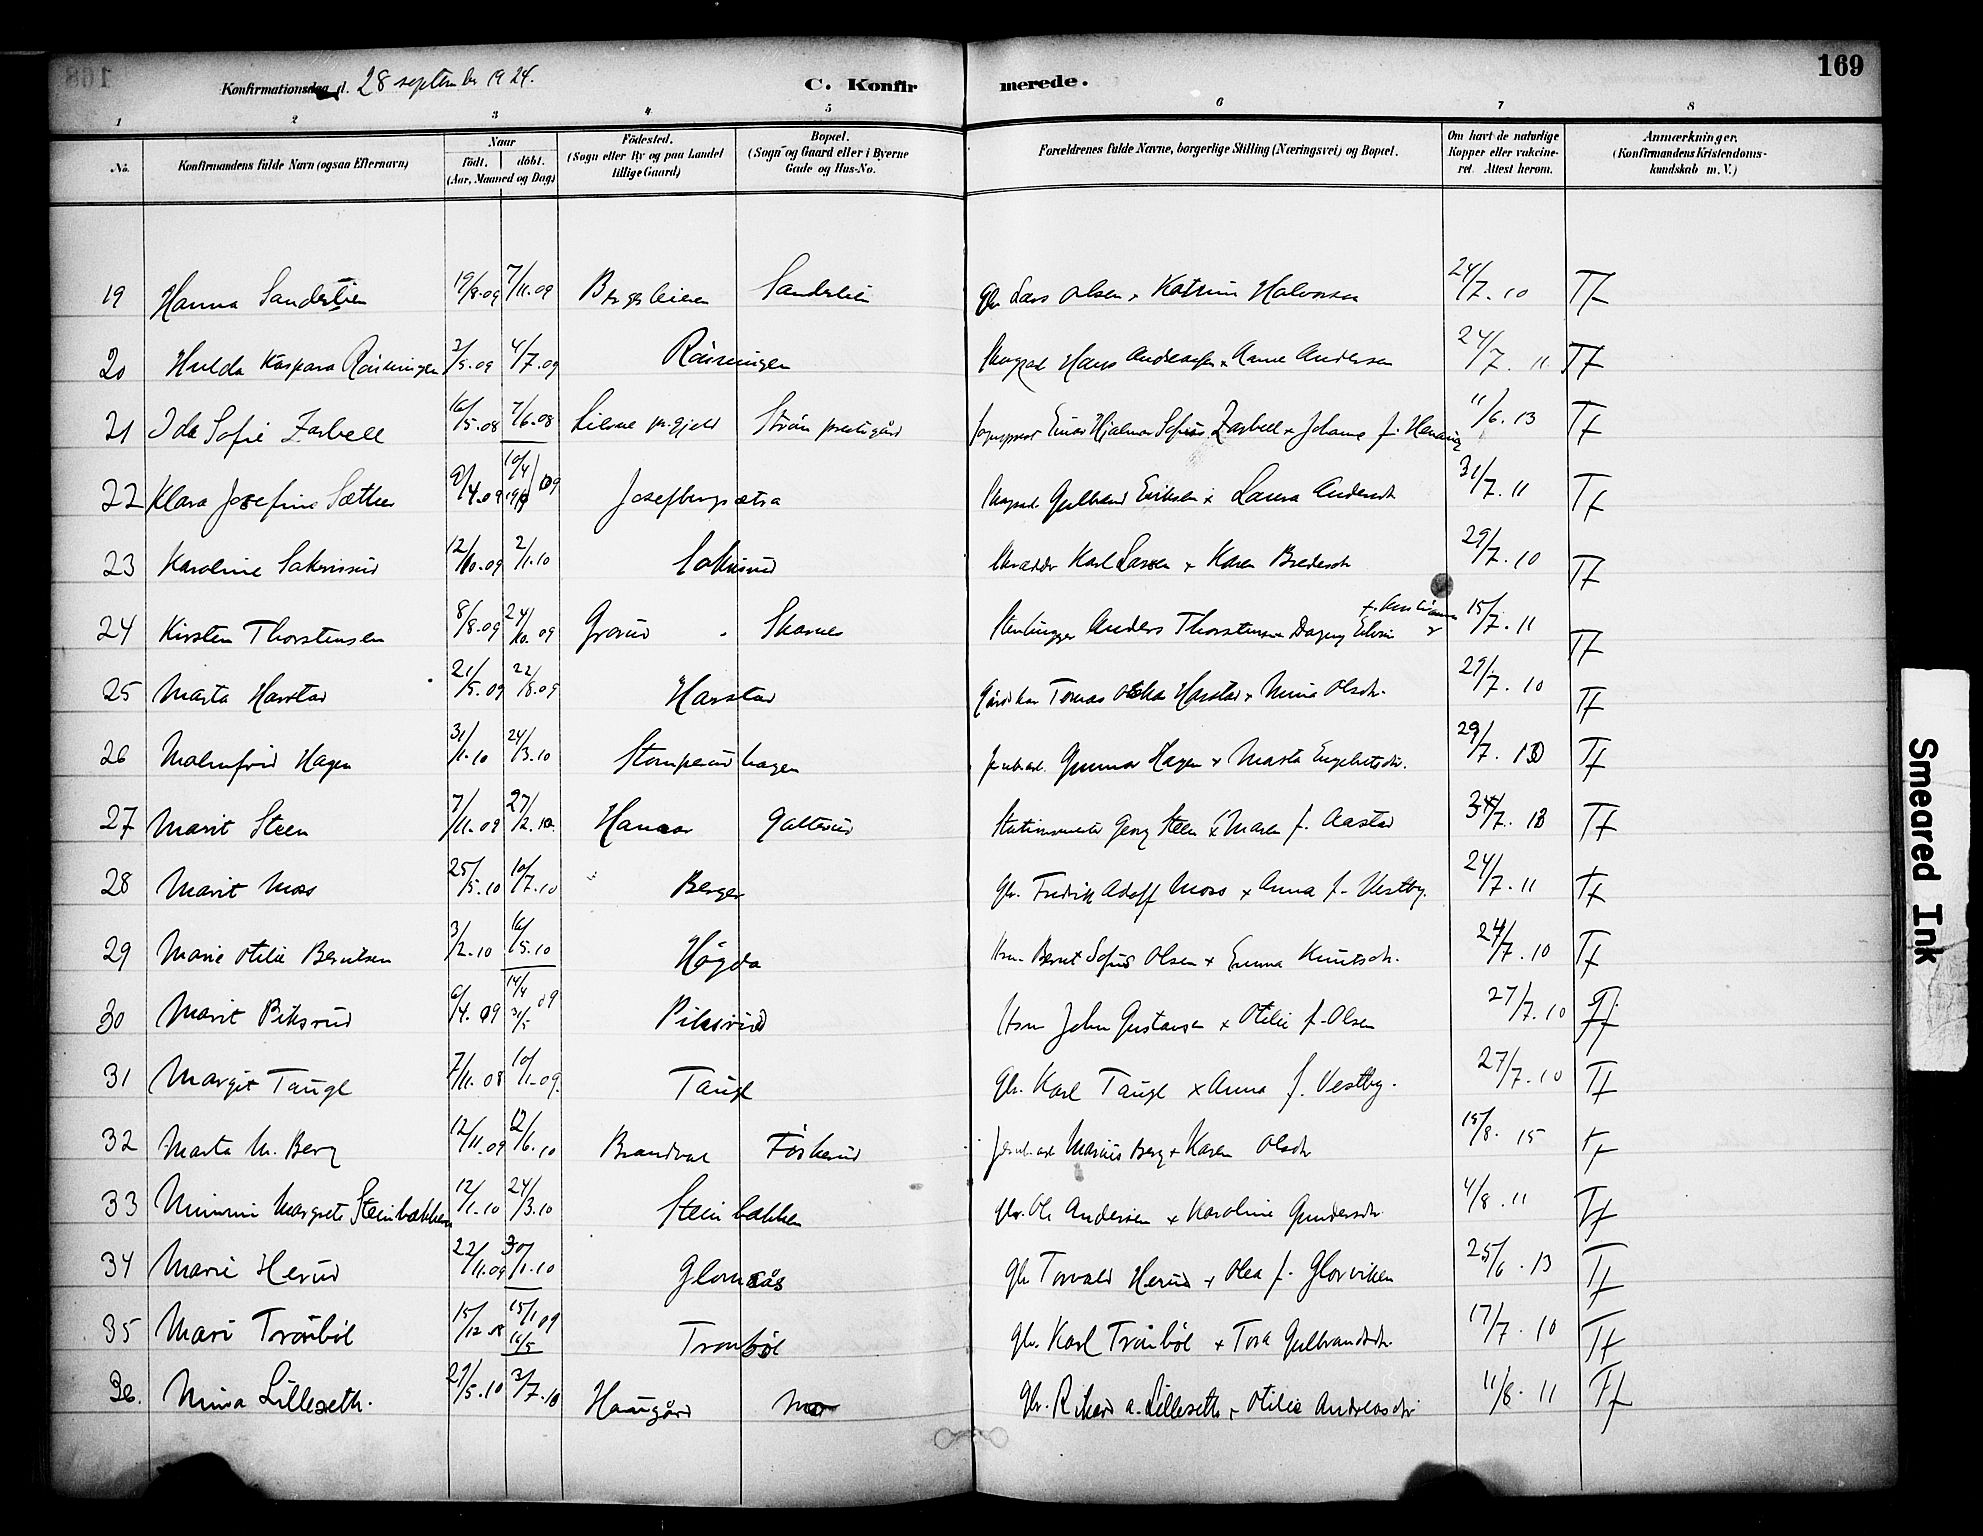 169
Konfirmationsdag d. 28 september 1924.
C. Konfirmerede.
1 2 3 4 5 6 7 8
No.
Konfirmandens fulde Navn (ogsaa Efternavn)
Naar
födt. döbt.
(Aar, Maaned og Dag)
Födested.
(Sogn eller By og paa Landet
tillige Gaard)
Bopæl.
(Sogn og Gaard eller i Byerne
Gade og Hus-No.
Forældrenes fulde Navne, borgerlige Stilling (Næringsvei) og Bopæl.
Om havt de naturlige
Kopper eller vakcine-
ret. Attest herom.
Anmærkninger.
(Konfirmandens Kristendoms-
kundskab m. V.)
19 Hanna Sanderlien 19/8.09 7/11.09 Sanderlien Lars Olsen x Katrine Halvorsen 24/7.10 Tf
20 Hulda Kaspara 2/5.09 4/7.09 Hans Andreassen x Anne Andersen 24/7.11 Tf
21 Ida Sofie Zarbell 16/5.08 7/6.08 Lierne pr.gjeld prestegård Sogneprest Einar Hjalmar Sofus Zarbell x Johanne f. Henning 11/6.13 Tf
22 Klara Josefine Sæther 9/4.09 10/4 09 Josefbergsætra Gulbrand Eriksen x Laura Andersdt 31/7.11 Tf
23 Karoline Sakrissud 12/10.09 2/1.10 Skrædder Karl Larsen x Karen Bredesdt 29/7.10 Tf
24 Kirsten Thorstensen 8/8.09 24/10.09 Grorud Skarnes Stenhugger Anders Thorstensen x Dagny 15/7.11 Tf
25 Marta Harstad 21/5.09 22/8.09 Harstad Tomas Harstad x Mina Olsdt. 29/7.10 Tf
26 Malmfrid Hagen 31/1.10 24/3.10 Stomperudhagen Gunnar Hagen x Marta Engebretsdt. 29/7.10 Tf
27 Marit Steen 7/11.09 27/2.10 Hamar Galterud Stationsmester Georg Steen x Maren f. Aastad Tf
28 Marit Moss 25/5.10 10/7.10 Berger Gbr. Fredrik Adolf Moss x Anna f. Vestby. 24/7.11 Tf
29 Marie Otilie Berntsen 3/2.10 16/5.10 Høgda Hsm. Bernt Sofus Olsen x Emma Knutsdt. 24/7.10 Tf
30 Marit Piksrud 6/4.09 14/4 31/5 09 Piksrud Hsm John Gustavsen x Otilie f. Olsen 27/7.10 Tf
31 Margit Taugl 7/11.08 10/1.09. Taugl Gbr. Karl Taugl x Anna f. Vestby. 27/7.10 Tf
32 Marta M. Berg 12/11.09 12/6.10 Brandval Føskerud Jernb.arb Marius Berg x Karen Olsdt 15/8.15 Tf
33 Mimmi Margrete Steinbakken 12/1.10 24/3.10 Steinbakken Gbr. Ole Andersen x Karoline Gundersdt 4/8.11 Tf
34 Marie Herud 22/11.09 30/1.10 Glomsås Gbr Torvald Herud x Olea f. Glorviken 25/6.13 Tf
35 Mari Trønbøl 15/12.08 15/1 09 16/5 Tronbøl Gbr. Karl Trønbøl x Tora Gulbrandsdt. 17/7.10 Tf
36. Mina Lilleseth. 27/5.10 3/7.10 Haugård Gbr. Rikard A. Lilleseth x Otilie Andreasdt. 11/8.11 Tf
Smeared Ink